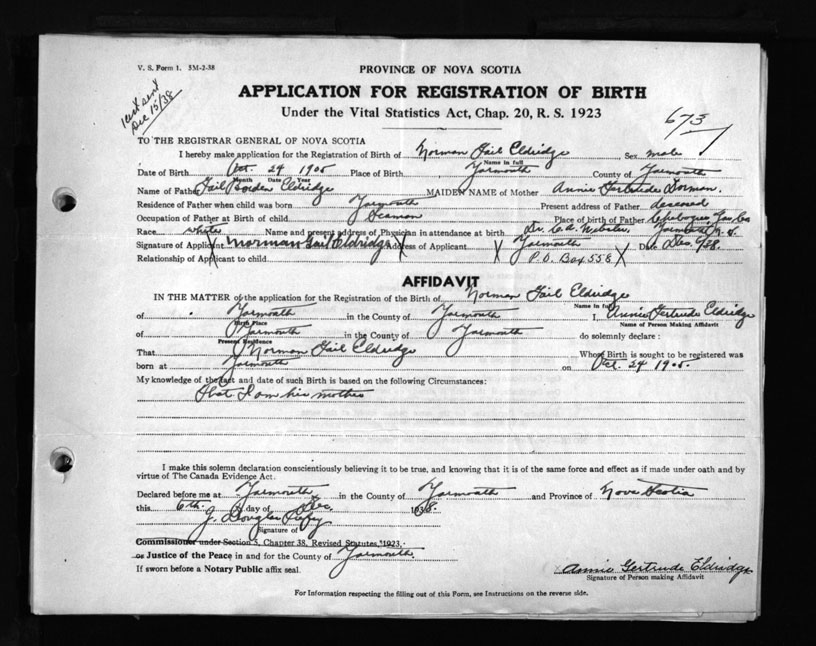 V. S. Form 1. 5M-2-38
PROVINCE OF NOVA SCOTIA
APPLICATION FOR REGISTRATION OF BIRTH
Under the Vital Statistics Act, Chap. 20, R. S. 1923
sent Dec 15/38
673
TO THE REGISTRAR GENERAL OF NOVA SCOTIA
I hereby make application for the Registration of Birth of Norman Gail Eldridge Sex male
Name in full
Date of Birth Oct. 24 1905 Place of Birth Yarmouth County of Yarmouth
Month Date Year
Name of Father Gail Borden Eldridge MAIDEN NAME of Mother Annie Gertrude Dorman.
Residence of Father when child was born Yarmouth Present address of Father deceased
Occupation of Father at Birth of child Seaman Place of birth of Father Yar. Co.
Race white Name and present address of Physician in attendance at birth Dr. C. A. Webster, Yarmouth N. S.
Signature of Applicant X Norman Gail Eldridge X Address of Applicant X Yarmouth Date Dec 9/38.
Relationship of Applicant to child P.O. Box 558 X
AFFIDAVIT
IN THE MATTER of the application for the Registration of the Birth of Norman Gail Eldridge
Name in full
of Yarmouth in the County of Yarmouth I, Annie Gertrude Eldridge
Birth Place Name of Person Making Affidavit
of Yarmouth in the County of Yarmouth do solemnly declare:
Present Residence
That Norman Gail Eldridge Whose Birth is sought to be registered was
born at Yarmouth on Oct. 24 1905.
My knowledge of the fact and date of such Birth is based on the following Circumstances:
That I am his mother
I make this solemn declaration conscientiously believing it to be true, and knowing that it is of the same force and effect as if made under oath and by
virtue of The Canada Evidence Act.
Declared before me at Yarmouth in the County of Yarmouth and Province of Nova Scotia
this 6th day of Dec. 1938.
J. Douglas
Signature of
Commissioner under Section 3, Chapter 38, Revised Statutes, 1923,
or Justice of the Peace in and for the County of Yarmouth.
If sworn before a Notary Public affix seal.
X Annie Gertrude Eldridge
Signature of Person making Affidavit
For Information respecting the filling out of this Form, see Instructions on the reverse side.